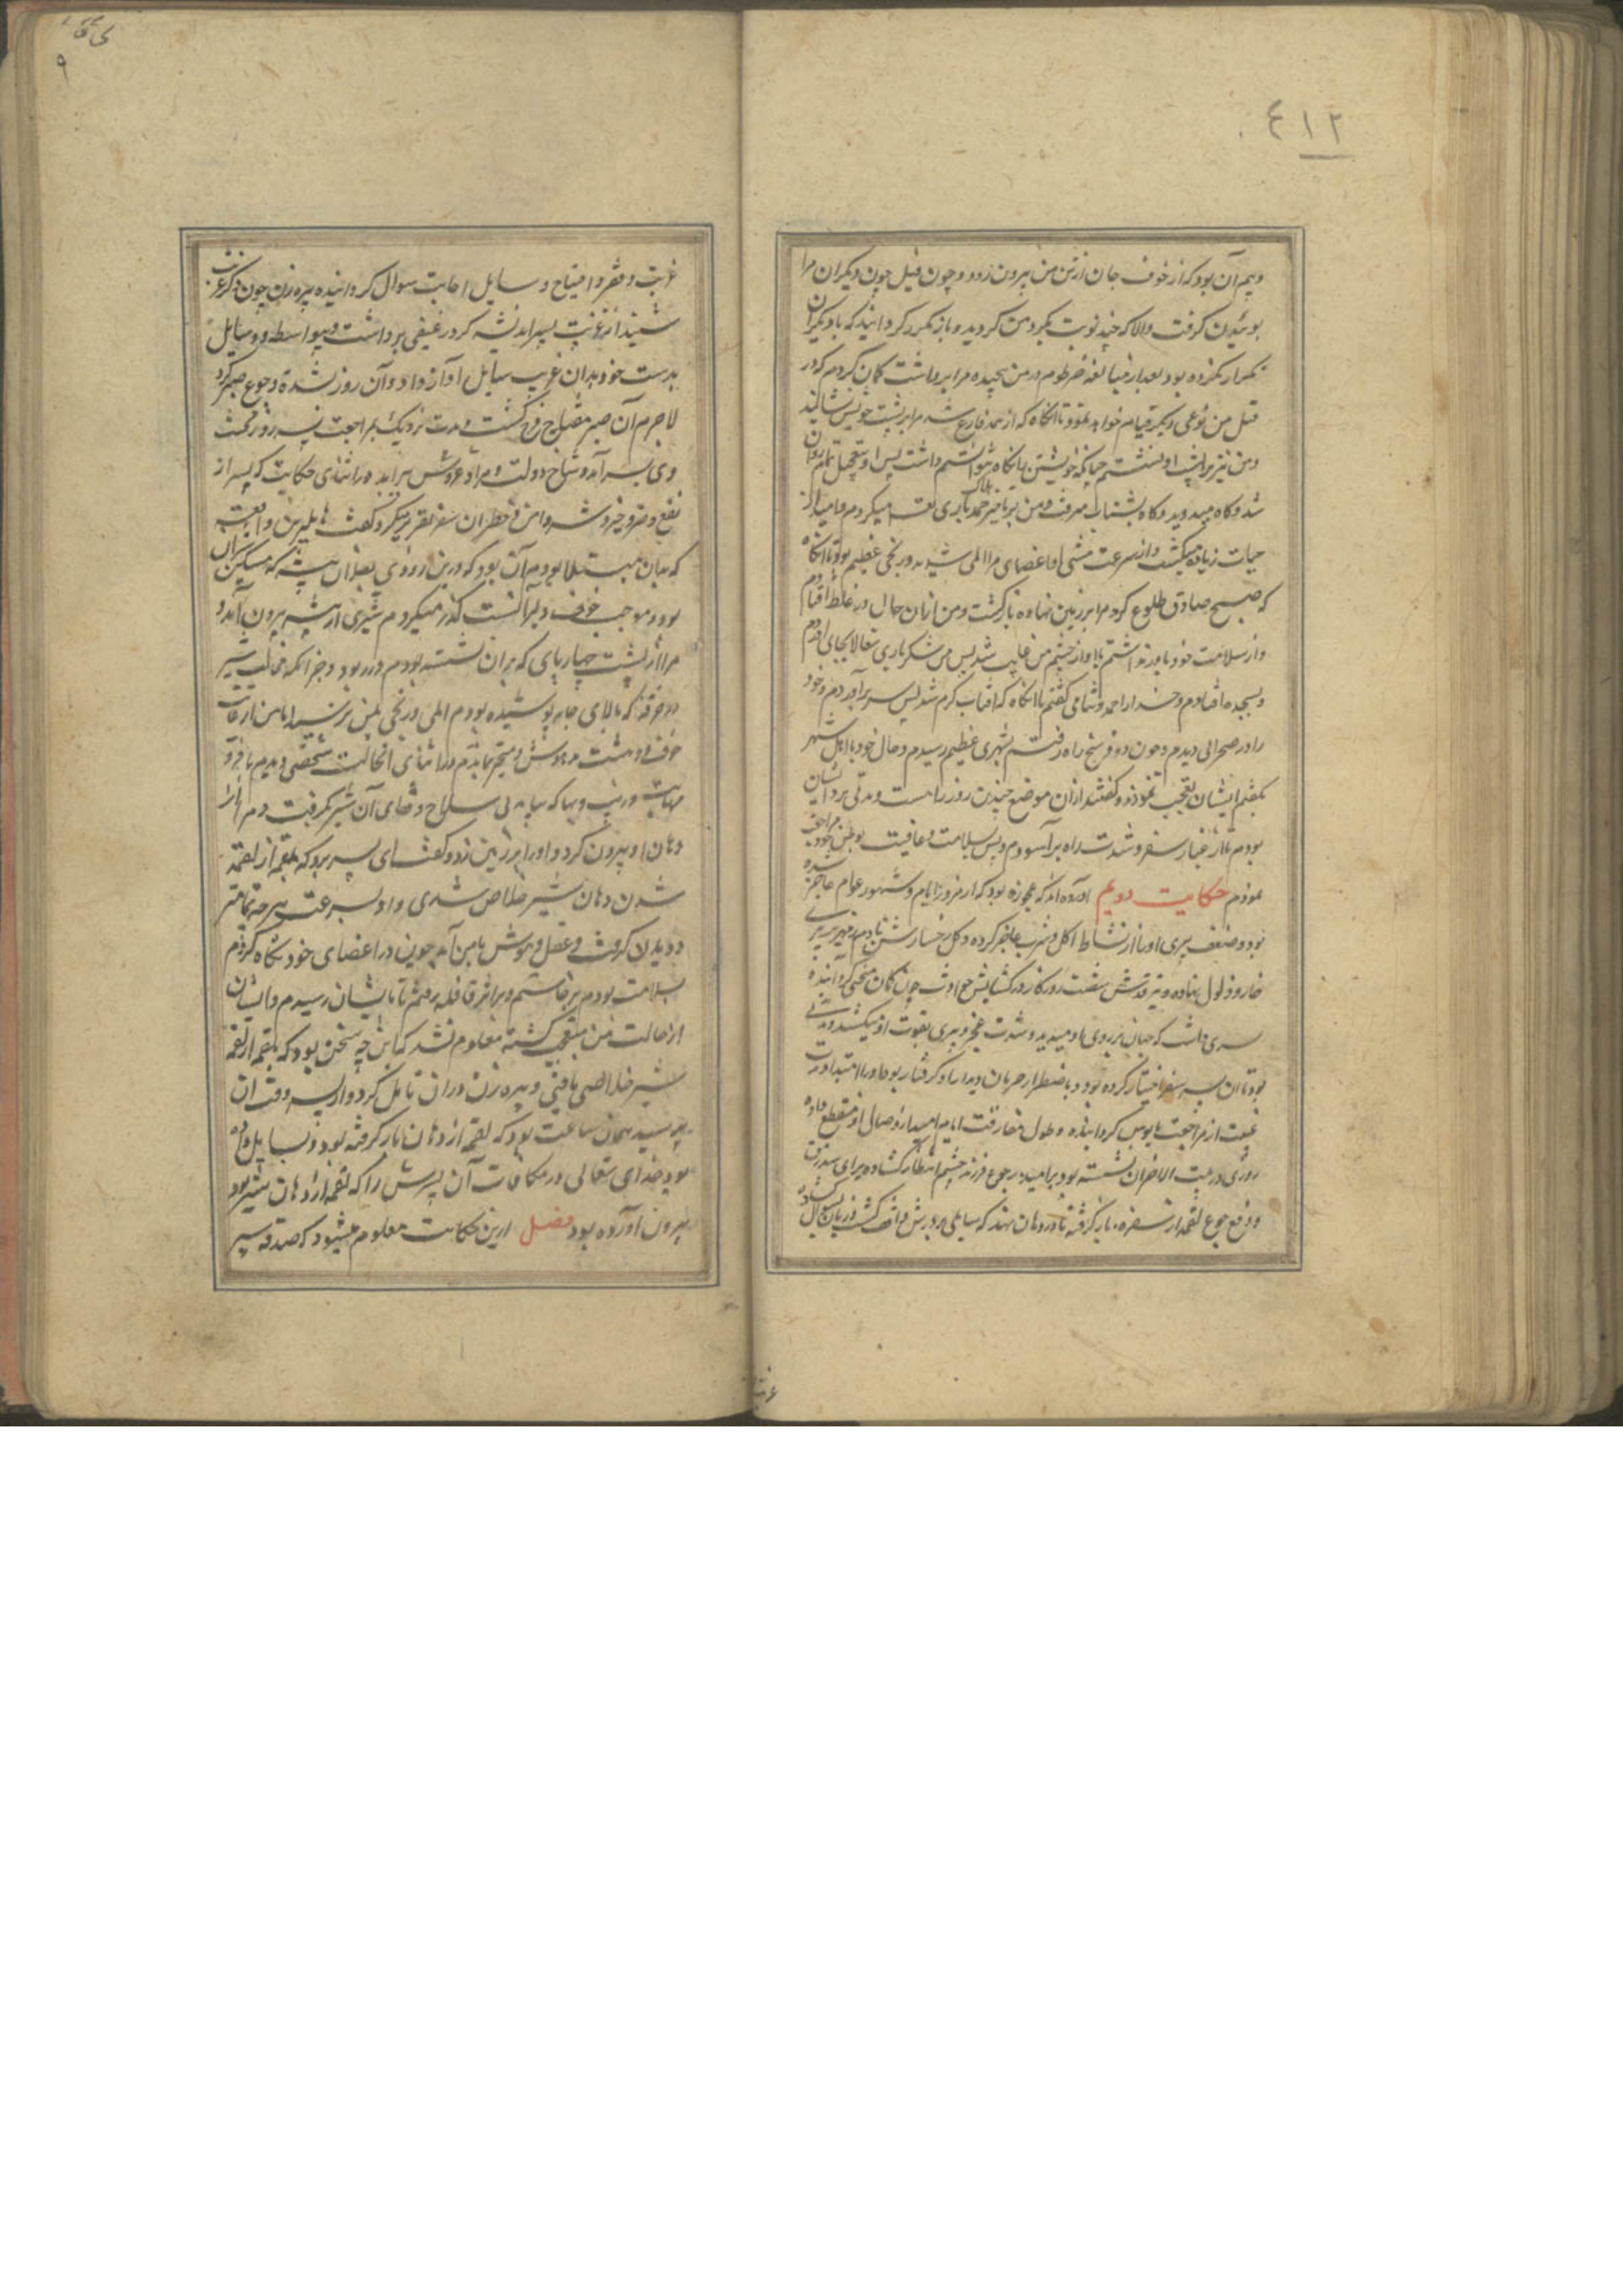 ٤١٢
وبیم آن بود که از خوف جان از تن من بیرون رود و چون فیل چون دیگران مرا
بوئیدن گرفت والا که چند نوبت بگرد من گردید و باز مکرر گردانید که با دیگران
تکرار نکرده بود بعد ازین مبالغه خرطوم در من پیچیده مرا برداشت گمان کردم که در
قتل من نوعی دیگر قیام خواهد نمود تا آنگاه که از همه فارغ شد مرا بر پشت خویش نشانید
ومن نیز بر پشت او نشستم چنانکه خویشتن را نگاه میتوانستم داشت پس او بتعجیل تمام روان
شد و گاه میدوید و گاه بشتاب میرفت ومن بر تاخیر هلاک حمد باری تعالی میکردم وامیدوار
حیات زیاده میگشت و از سرعت مشی او اعضای مرا المی شدید و رنجی عظیم بود تا آنگاه
که صبح صادق طلوع کرد مرا بر زمین نهاده بازگشت ومن ازان حال در غلط افتادم
و از سلامت خود باور نداشتم تا او از چشم من غایب شد پس من شکر باری تعالی بجای آوردم
و بسجده افتادم و خدا را حمد و ثنا می گفتم تا آنگاه که آفتاب گرم شد پس سر برآوردم و خود
را در صحرائی دیدم و چون دو فرسخ راه رفتم بشهری عظیم رسیدم و حال خود با اهل شهر
بگفتم ایشان تعجب نمودند و گفتند ازان موضع چندین روزه راهست و مدتی بر ایشان
بودم تا از غبار سفر و شدت راه برآسودم و پس بسلامت و عافیت بوطن خود مراجعت
نمودم حکایت دویم آورده اند که عجوزه بود که از مرور ایام و شهور عوام عاجز شده
بود و ضعف پیری او را از نشاط اکل و شرب عاجز کرده و گل رخسارش
خار و ذبول نهاده و تیر قدش شست روزگار در کشایش حوادث چون کمان منحنی گردانیده
پسری داشت که جهان بر روی او میدید و شدت عجز و پیری بقوت او میکشید و مدتی
بود تا آن پسر سفر اختیار کرده بود و باضطرار حرمان دیدار او گرفتار بود و او را امتداد مدت
غیبت از مراجعت مایوس گردانیده و طول مفارقت ایام امید از وصال او منقطع داده
روزی در بیت الاحزان نشسته بود بر امید رجوع فرزند چشم انتظار گشاده برای سد رمق
و دفع جوع لقمه از سفره باز گرفته تا در دهان نهد که سایلی بر درش واقف گشت و زبان بسؤال گشاد
غربت
غربت و فقر و احتیاج و سایل اجابت سوال گردانیده پیره زن چون ذکر غربت
شنید از غربت پسر اندیشه کرد رغیفی برداشت و بیواسطه و وسایل
بدست خود بدان غریب سایل آواز داد و آن روز بشدة وجوع صبر کرد
لاجرم آن صبر مفتاح فرج گشت و مدت نزدیک بمراجعت پسر روز گذشت
وی بسر آمد و شاخ دولت و مراد عروس برآید در اثنای حکایت که پسر از
نفع و ضر و خیر و شر و امن و خطر آن سفر تقریر میکرد گفت هایلترین واقعه
که بدان مبتلا بودم آن بود که در بن روزی بفلان بیشه که مسکن شیران
بود و موجب خوف دیران گشت گذر میکردم شیری از بیشه بیرون آمد و
مرا از پشت چهارپای که بران نشسته بودم در ربود و جز آنکه مخالب شیر
در خرقه که بالای جامه پوشیده بودم المی و رنجی بمن نرسید اما من از غایت
خوف و دهشت مدهوش و متحیر بماندم در اثنای آنحالت شخصی دیدم با فر و
مهابت و زینت و بها که بیامد بی سلاح و قفای آن شیر بگرفت و مرا از
دهان او بیرون کرد و او را بر زمین زد و گفت ای پسر برو که بلقمه از لقمه
شدن دهان شیر خلاص شدی و او بسرعت هر چه تمامتر
دویدن گرفت و عقل و هوش با من آمد چون در اعضای خود نگاه کردم
بسلامت بودم برخاستم و بر اثر قافله برفتم تا بایشان رسیدم و ایشان
از حالت من متعجب گشته معلوم نشد که این چه سخن بود که بلقمه از لقمه
شیر خلاصی یافتی و پیره زن دران تامل کرد و از پسر وقت آن
بپرسید همان ساعت بود که لقمه از دهان باز گرفته بود و بسایل داده
بود خدای تعالی در مکافات آن پسرش را که لقمه از دهان شیر بود
بیرون آورده بود فصل ازین حکایت معلوم میشود که صدقه سپر